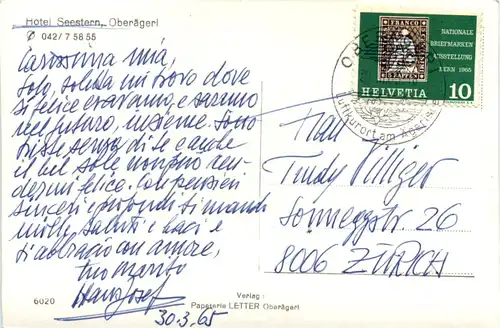 Hotel Seestern, Oberägeri
✆ 042/7 58 55
Carissima mia,
solo, solo mi trovo dove
si felice eravamo, e saremo
nel futuro, insieme. Sono
triste senza di te e anche
il bel sole non può ren-
dermi felice. Con pensieri
sinceri e profondi ti mando
molti saluti e baci e
ti abbraccio con amore,
tuo marito
Hansjosef
30.3.65
6020
Verlag:
Papeterie LETTER Oberägeri
FRANCO
5 RAPPEN
NATIONALE
BRIEFMARKEN
AUSSTELLUNG
BERN 1965
HELVETIA 10
Luftkurort am Ägerisee
Frau
Trudy Villiger
Sonneggstr. 26
8006 ZÜRICH